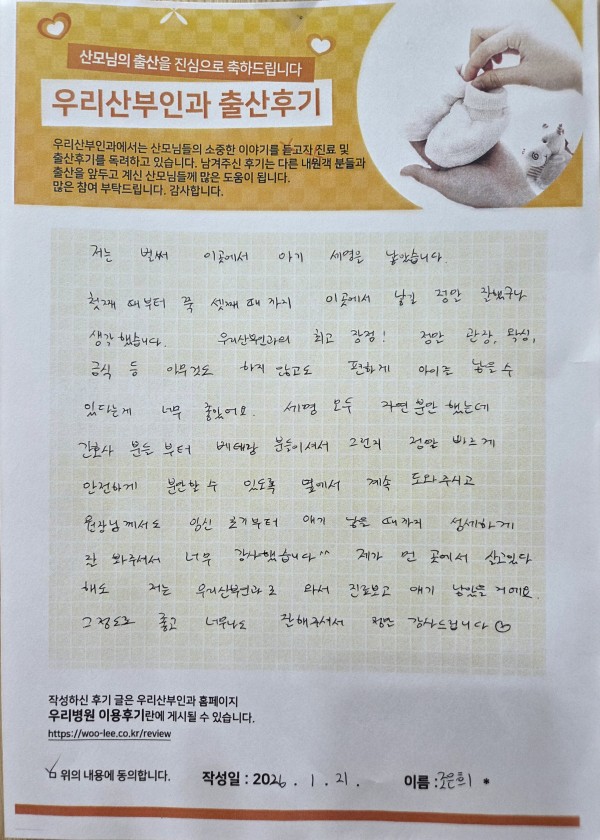 산모님의 출산을 진심으로 축하드립니다
우리산부인과 출산후기
우리산부인과에서는 산모님들의 소중한 이야기를 듣고자 진료 및
출산후기를 독려하고 있습니다. 남겨주신 후기는 다른 내원객 분들과
출산을 앞두고 계신 산모님들께 많은 도움이 됩니다.
많은 참여 부탁드립니다. 감사합니다.
저는 벌써 이곳에서 아기 세명을 낳았습니다.
첫째 때부터 쭉 셋째 때 까지 이곳에서 낳길 정말 잘했구나
생각 했습니다. 우리산부인과의 최고 장점! 정말 관장, 왁싱,
금식 등 아무것도 하지 않고도 편하게 아이를 낳을 수
있다는게 너무 좋았어요. 세명 모두 자연 분만 했는데
간호사 분들 부터 베테랑 분들이셔서 그런지 정말 빠르게
안전하게 분만할 수 있도록 옆에서 계속 도와주시고
원장님께서도 임신 초기부터 애기 낳을 때까지 섬세하게
잘 봐주셔서 너무 감사했습니다^^ 제가 먼 곳에서 살고있다
해도 저는 우리산부인과로 와서 진료보고 애기 낳았을 거예요.
그정도로 좋고 너무나도 잘해주셔서 정말 감사드립니다♡
작성하신 후기 글은 우리산부인과 홈페이지
우리병원 이용후기란에 게시될 수 있습니다.
https://woo-lee.co.kr/review
위의 내용에 동의합니다. 작성일 : 2026 . 1 . 21 . 이름 : 조은희 *